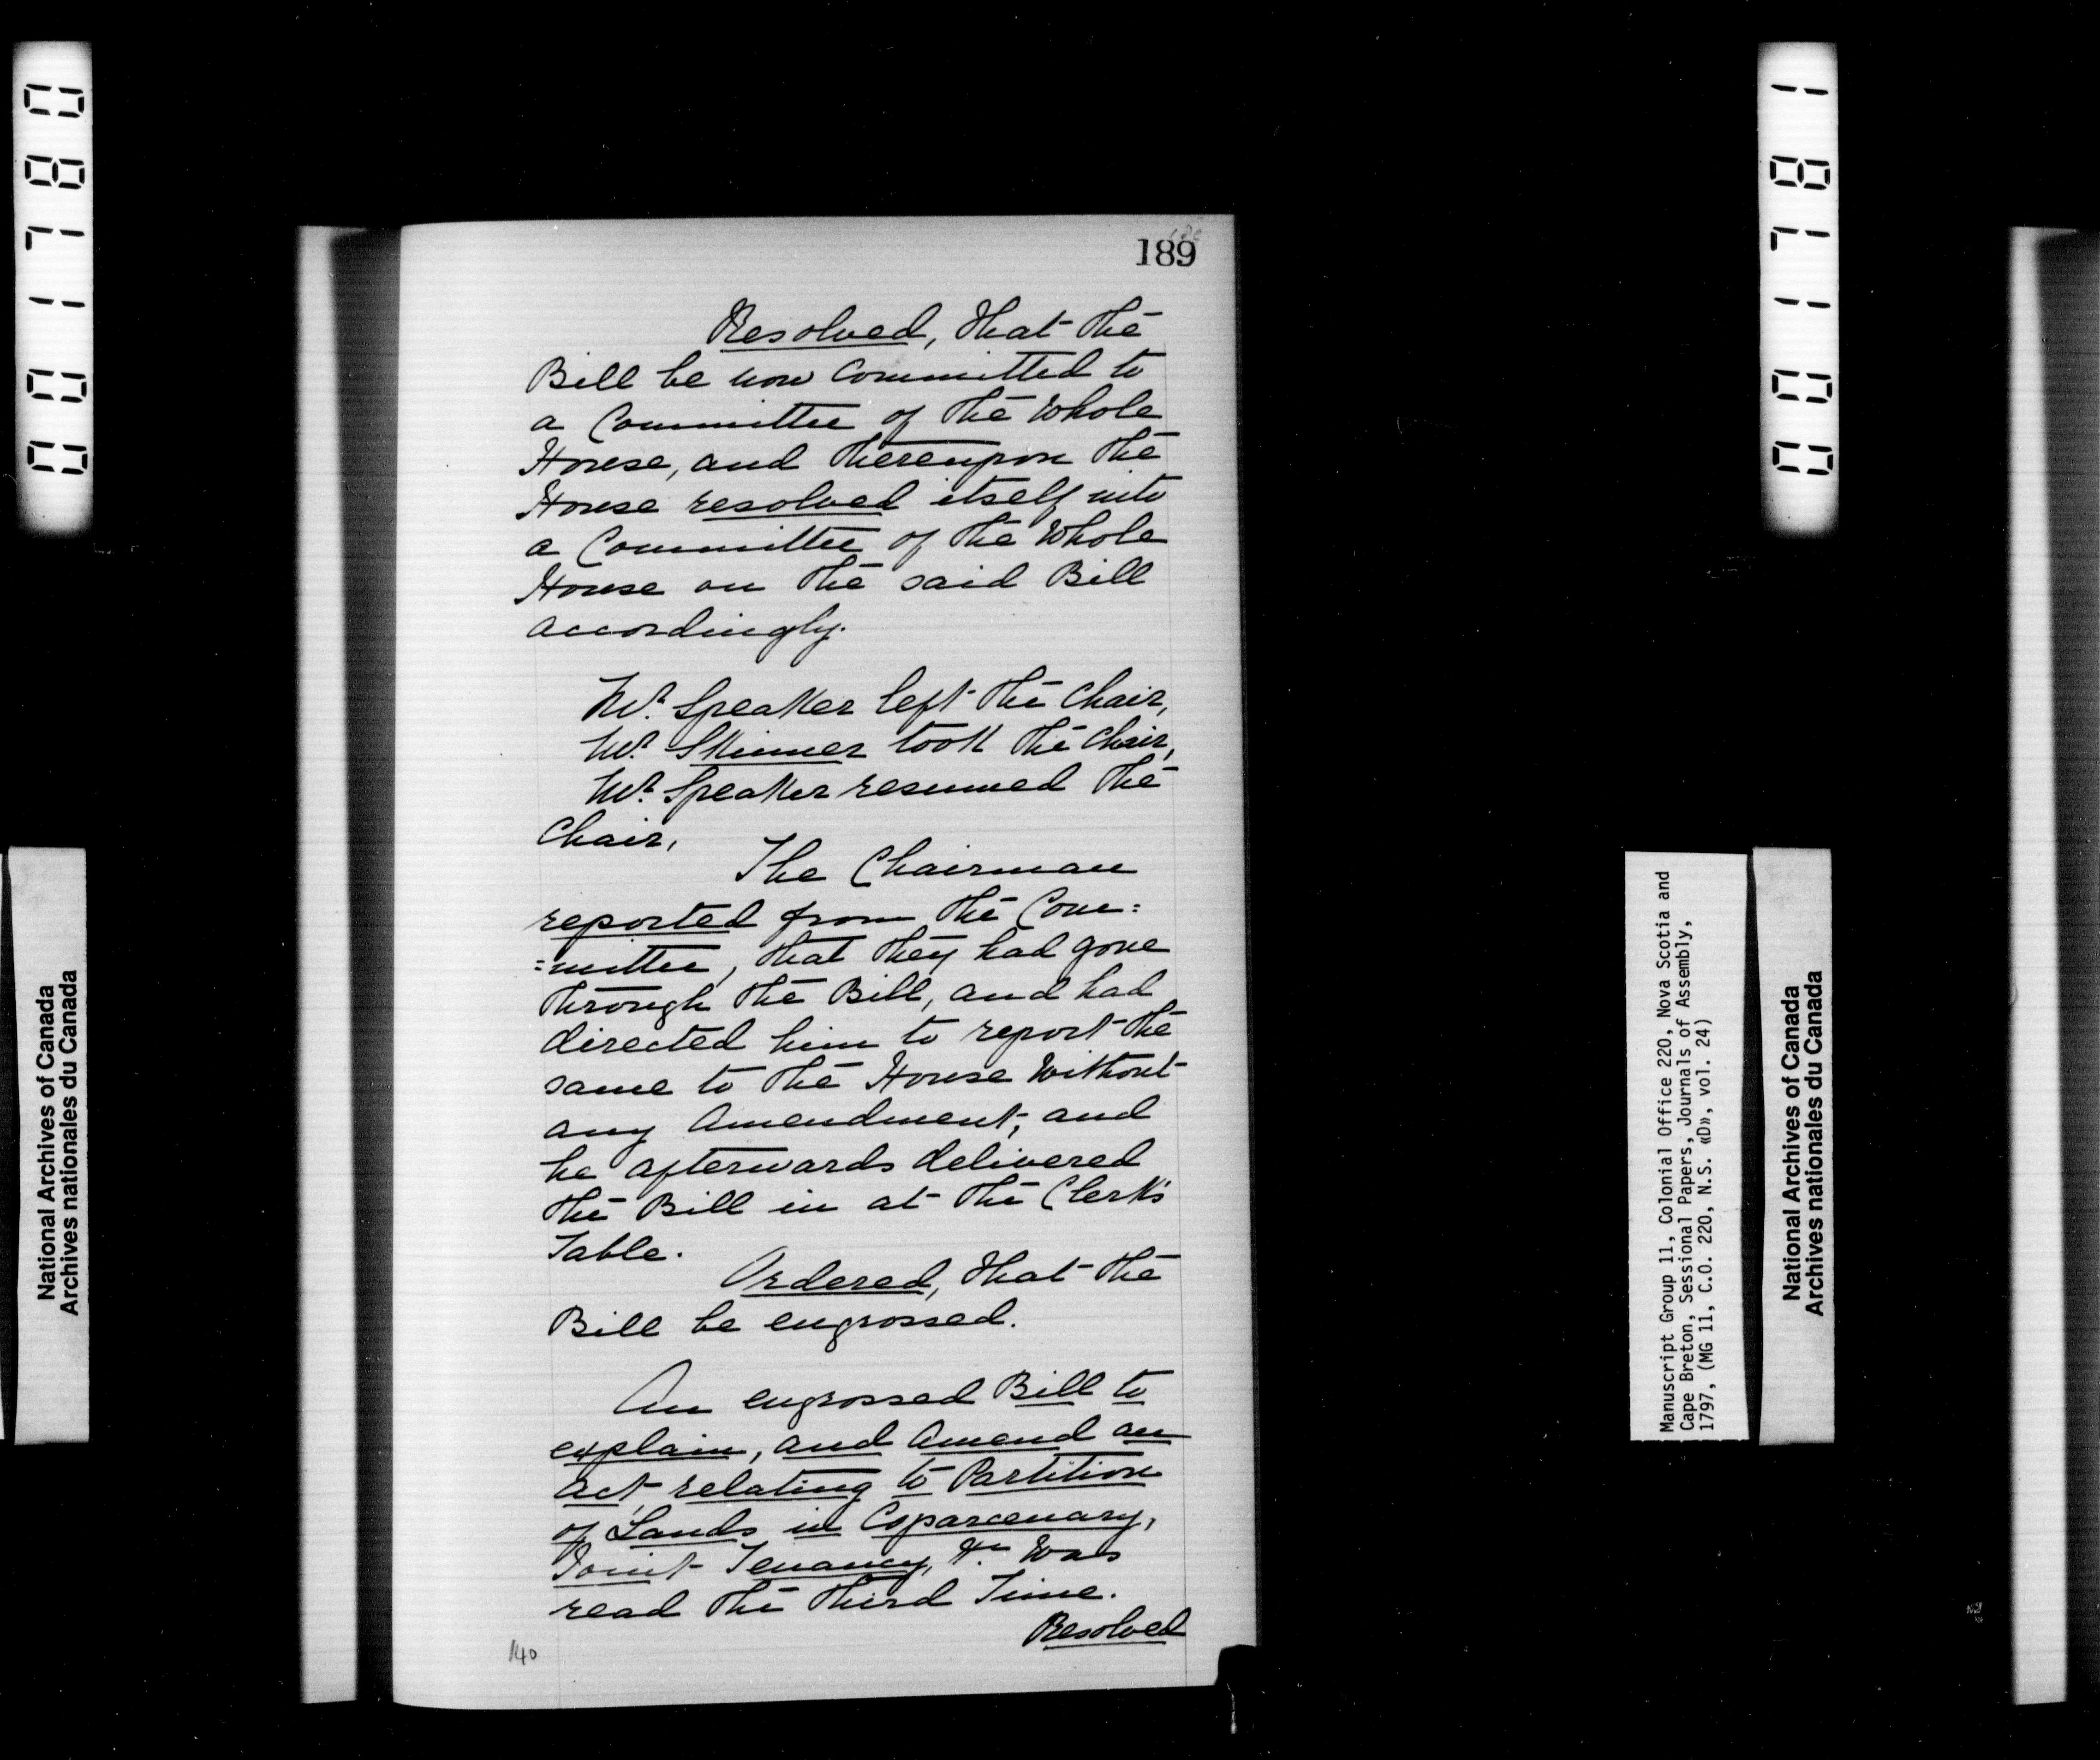 001780
National Archives of Canada
Archives nationales du Canada
189
Resolved, that the
Bill be now Committed to
a Committee of the Whole
House, and thereupon the
House resolved itself into
a Committee of the Whole
House on the said Bill
accordingly.
Mr. Speaker left the Chair,
Mr. Skinner took the Chair,
Mr. Speaker resumed the
Chair,
The Chairman
reported from the Com=
=mittee, that they had gone
through the Bill, and had
directed him to report the
same to the House without
any Amendment, and
he afterwards delivered
the Bill in at the Clerk's
Table.
Ordered, that the
Bill be engrossed.
An engrossed Bill to
explain, and Amend an
act, relating to Partition
of Lands in Coparcenary,
Joint Tenancy, &c was
read the third Time.
Resolved
140
001781
Manuscript Group 11, Colonial Office 220, Nova Scotia and
Cape Breton, Sessional Papers, Journals of Assembly,
1797, (MG 11, C.O. 220, N.S. «D», vol. 24)
National Archives of Canada
Archives nationales du Canada